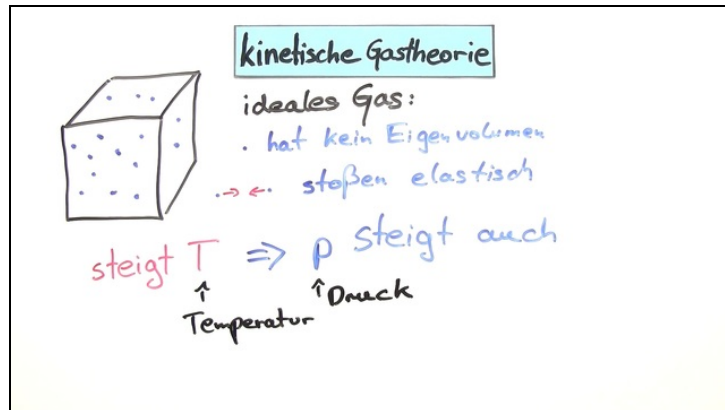 kinetische Gastheorie
ideales Gas:
. hat kein Eigenvolumen
stoßen elastisch
steigt T ⇒ p steigt auch
↑ ↑ Druck
Temperatur